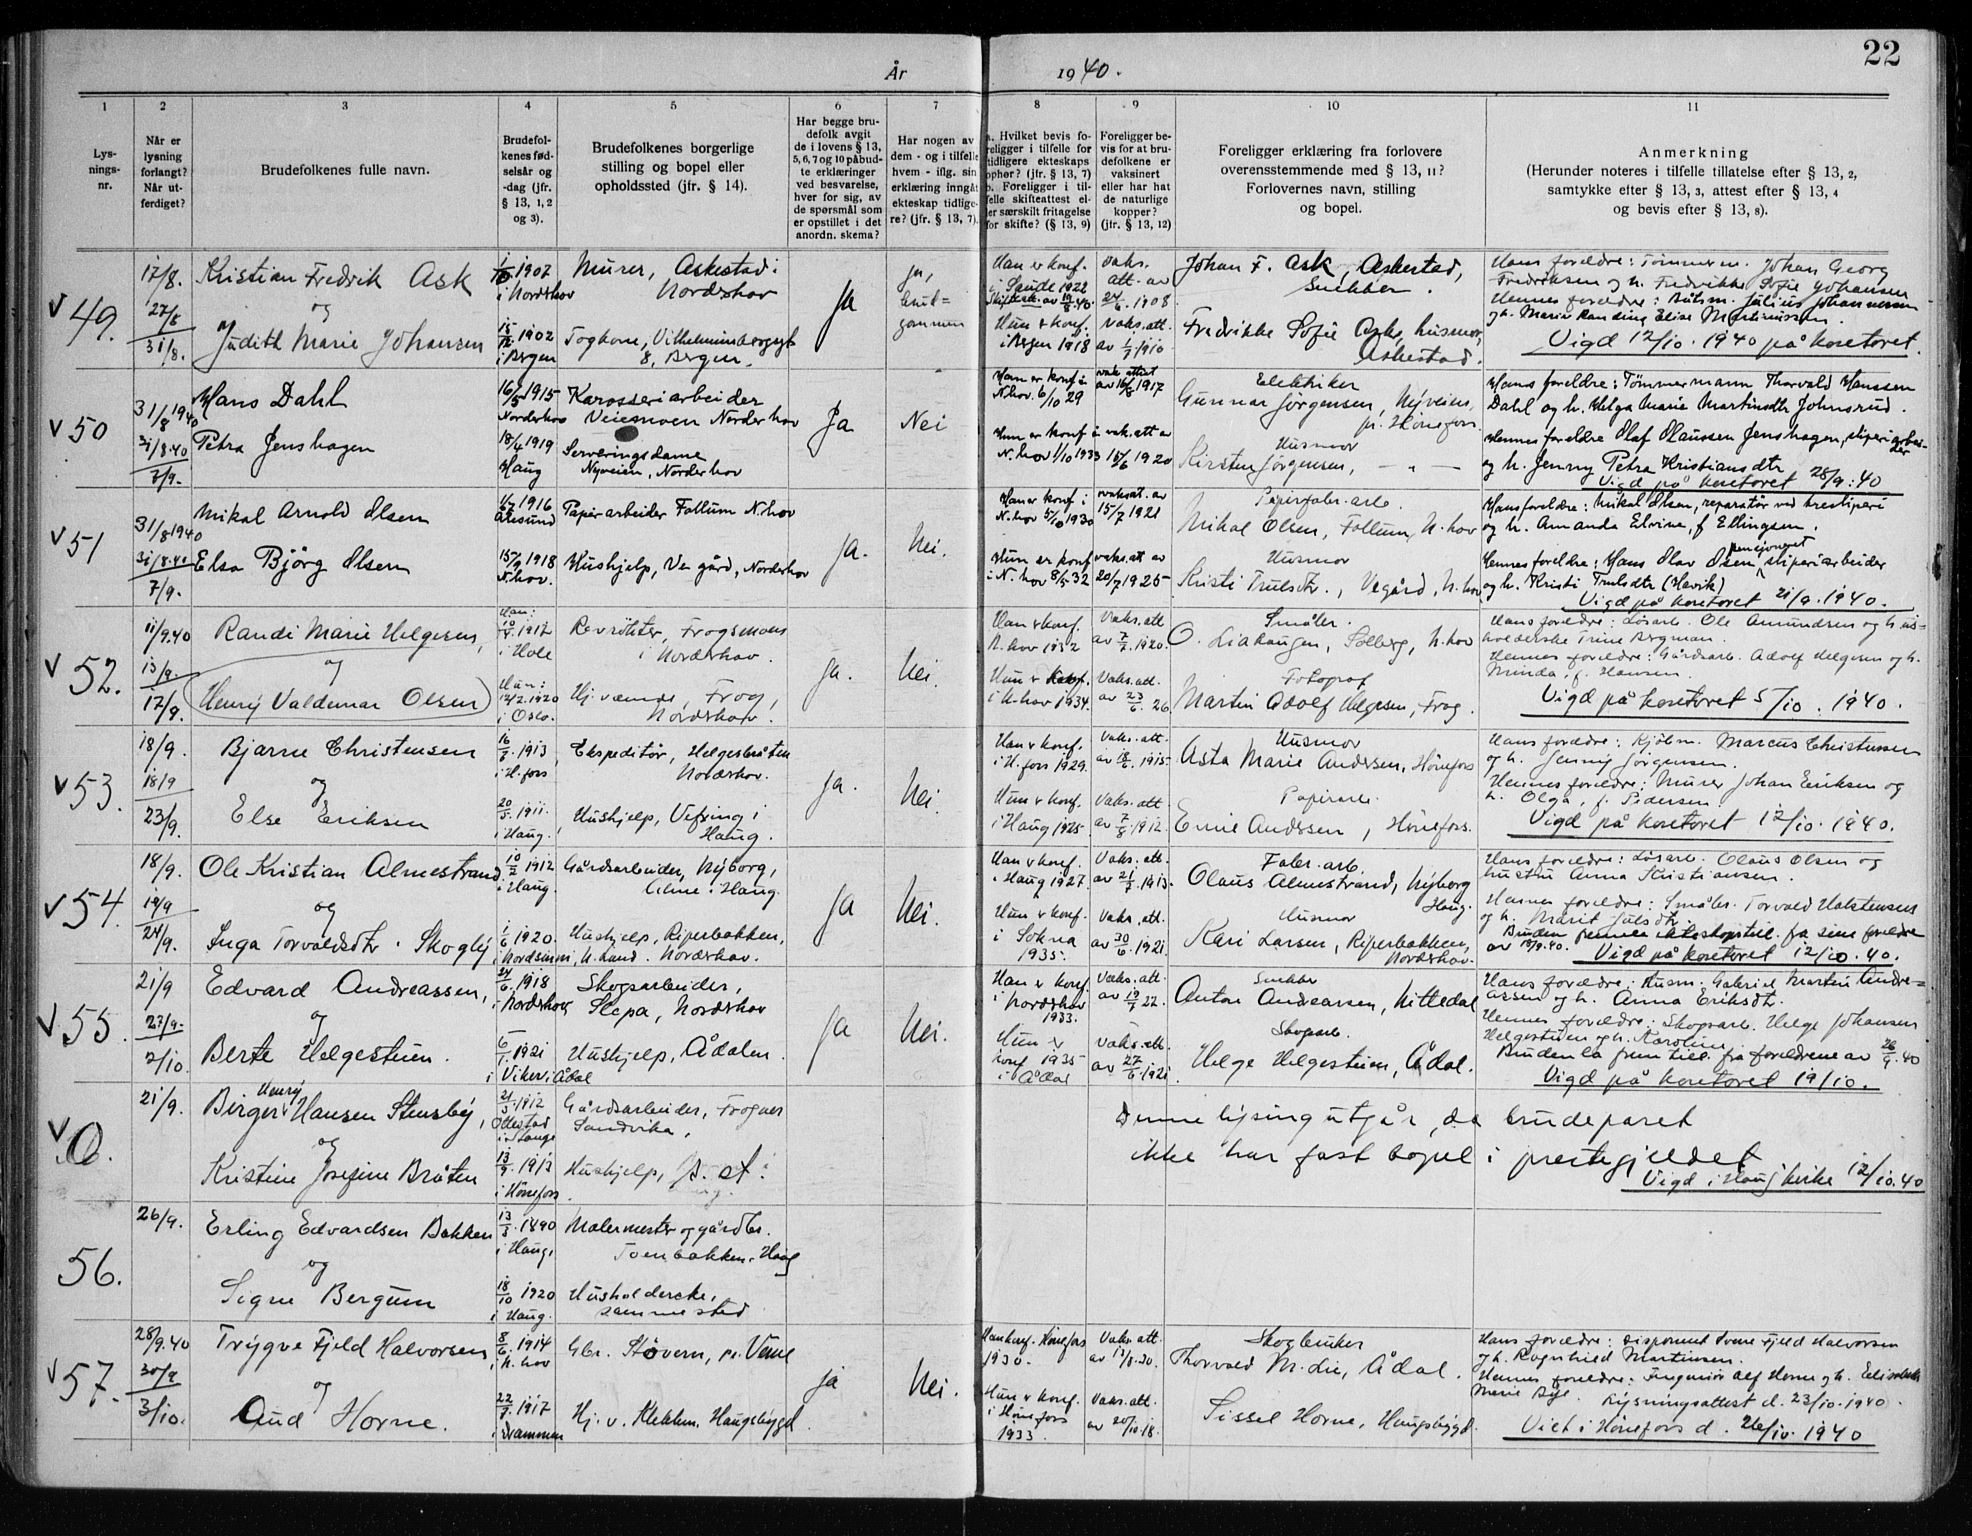 22
År 1940.
1 2 3 4 5 6 7 8 9 10 11
Lys-
nings-
nr.
Når er
lysning
forlangt?
Når ut-
ferdiget?
Brudefolkenes fulle navn.
Brudefol-
kenes fød-
selsår og
-dag (jfr.
§ 13, 1, 2
og 3).
Brudefolkenes borgerlige
stilling og bopel eller
opholdssted (jfr. § 14).
Har begge bru-
defolk avgit
de i lovens § 13,
5, 6, 7 og 10 påbud-
te erklæringer
ved besvarelse,
hver for sig, av
de spørsmål som
er opstillet i det
anordn. skema?
Har nogen av
dem - og i tilfelle
hvem - iflg. sin
erklæring inngått
ekteskap tidlige-
re? (jfr. § 13, 7).
a. Hvilket bevis fo-
religger i tilfelle for
tidligere ekteskaps
ophør? (jfr. § 13, 7)
b. Foreligger i til-
felle skifteattest el-
ler særskilt fritagelse
for skifte? (§ 13, 9)
Foreligger be-
vis for at bru-
defolkene er
vaksinert
eller har hat
de naturlige
kopper?
(jfr. § 13, 12)
Foreligger erklæring fra forlovere
overensstemmende med § 13, 11?
Forlovernes navn, stilling
og bopel.
Anmerkning
(Herunder noteres i tilfelle tillatelse efter § 13, 2,
samtykke efter § 13, 3, attest efter § 13, 4
og bevis efter § 13, 8).
v 49.
17/8.
27/8
31/8.
Kristian Fredrik Ask
og
Judith Marie Johansen
1907
i Nordrhov
1902
i Bergen
Murer, Askestad i
Nordrhov
8, Bergen.
Ja
ja,
brud=
gommen
Han er konf.
i Sande 1922
Hun er konf.
i Bergen 1918
vaks.
att. av
24/6 1908.
vaks. att.
av 1/7 1910
Johan F. Ask, Askestad,
Snekker.
Fredrikke Sofie Ask, husmor,
Askestad.
Hans foreldre: Tømmerm. Johan Georg
Fredriksen og h. Fredrikke Sofie Johansen
Hennes foreldre: Båtsm. Julius Johannessen
og h. Marie Randine Elise Martinussen.
Vigd 12/10. 1940 på kontoret.
v 50
31/8 1940
31/8.40
7/9.
Hans Dahl
Petra Jenshagen
16/5 1915
Norderhov
18/4 1919
Haug
Karosseriarbeider
Veiemoen Norderhov
Serveringsdame
Nyveien, Norderhov
Ja
Nei
Han er konf i
N.hov. 6/10 29
Hun er konf i
N.hov 1/10 1933
vak. attest
av 16/8 1917
vak. att av
15/6 1920
Elektriker
Gunnar Jørgensen, Nyveien,
pr. Hønefoss.
Husmor
Kirsten Jørgensen, — " —
Hans foreldre: Tømmermann Thorvald Hanssen
Dahl og h. Helga Marie Martinsdtr Johnsrud.
Hennes foreldre Olaf Olaussen Jenshagen, sliperiarbei-
der
og h. Jenny Petra Kristiansdtr
Vigd på kontoret 28/9.40
v 51
31/8 1940
31/8.40
7/9.
Mikal Arnold Olsen
Elsa Bjørg Olsen
1916
Ålesund
15/9 1918
N.hov.
Papirarbeider Follum N.hov
Hushjelp, Ve gård, Norderhov
Ja.
Nei.
Han er konf i
N.hov 5/10 1930
Hun er konf
i N.hov 8/5 32
vaksat. av
15/7 1921
vaksat av
20/7 1925
Papirfabr. arb.
Mikal Olsen, Follum, N.hov
Husmor
Kristi Trulsdtr., Vegård, N.hov
Hans foreldre: Mikal Olsen, reparatør ved tresliperi
og h. Amanda Elvine, f Ellingsen.
pensjonert
Hennes foreldre: Hans Olav Olsen, sliperiarbeider
og h. Kristi Trulsdtr (Hevik)
Vigd på kontoret 21/9.1940.
v 52.
11/9.40
13/9.
17/9.
Randi Marie Helgesen,
og
Henry Valdemar Olsen
1917
i Hole
12/2.1920
i Oslo.
i Nordrhov.
Hj. værende, Frog,
Nordrhov.
Ja.
Nei.
Han er konf.
N.hov 1932
Hun er konf.
i N.hov 1934.
Vaks. att
av 7/7 1920.
Vaks. att.
av 23/6 26
Småbr.
O. Liahaugen, Solberg, N.hov
Fotograf
Martin Adolf Helgesen, Frog.
Hans foreldre: Løsarb. Ole Amundsen og h us=
holderske Trine Bergman.
Hennes foreldre: Gårdsarb. Adolf Helgesen og h.
Minda, f. Hansen.
Vigd på kontoret 5/10. 1940.
v 53.
18/9.
18/9
23/9.
Bjarne Christensen
og
Else Eriksen
16/6 1913
i H.foss
20/5 1911.
i Haug.
Ekspeditør, Helgesbråten
Nordrhov.
Hushjelp, Vefring i
Haug.
Ja.
Nei.
Han er konf.
i H.foss 1929.
Hun er konf.
i Haug 1925.
Vaks. att.
av 18/6 1915.
Vaks. att
av 7/8 1912.
Husmor
Asta Marie Andersen, Hønefoss
Papirarb.
Emil Andersen, Hønefoss.
Hans foreldre: Kjøbm. Marcus Christensen
og h. Jenny Jørgensen.
Hennes foreldre: Murer Johan Eriksen og
h. Olga, f. Pedersen.
Vigd på kontoret 12/10.1940.
v 54.
18/9.
19/9
24/9.
Ole Kristian Almestrand
og
Inga Torvaldsdtr. Skogly
10/2 1912
i Haug
1/6 1920.
i Nordsinni, N.Land.
Gårdsarbeider, Nyborg,
Alme i Haug.
Hushjelp, Riperbakken,
Nordrhov.
Ja
Nei.
Han er konf.
i Haug 1927.
Hun er konf.
i Sokna
1935.
Vaks. att.
av 21/7 1913.
Vaks. att.
av 30/6 1921
Fabr. arb.
Olaus Almestrand, Nyborg
Haug.
Husmor
Kari Larsen, Riperbakken,
Nordrhov.
Hans foreldre: Løsarb. Olaus Olsen og
hustru Anna Kristiansen.
Hennes foreldre: Småbr. Torvald Halstensen
og h. Marit Julsdtr
Vigd på kontoret 12/10.40.
v 55.
21/9
27/9.
2/10.
Edvard Andreassen,
og
Berte Helgestuen.
24/6. 1918
i Nordrhov
6/1. 1921
i Viker i Ådal
Skogsarbeider,
Slepa, Nordrhov
Hushjelp, Ådalen.
Ja
Nei.
Han er konf.
i Nordrhov
1933.
Hun er
konf 1935
i Ådal
Vaks. att.
av 19/7 22.
Vaks. att.
av 27/6. 1921
Snekker
Anton Andreassen, Nittedal
Skogsarb.
Helge Helgestuen, Ådal.
Hans foreldre: Husm. Gabriel Martin Andre=
assen og h. Anna Eriksdtr.
Hennes foreldre: Skogsarb. Helge Johansen
Helgestuen og h. Karoline
Bruden la frem till. fra foreldrene av 26/9.40
Vigd på kontoret 19/10.
v 0.
21/9.
Henry
Birger Hansen Stensby,
og
Kristine Josefine Bråten
21/3.1912
Ottestad
i Stange
13/9. 1913
i Hønefoss.
Gårdsarbeider, Frogner
Sandvika,
Hushjelp, p. st.
Denne lysing utgår, da brudeparet
ikke har fast bopel i prestegjeldet
Vigd i Haug kirke 12/10.40
56.
26/9.
Erling Edvardsen Bakken
og
Signe Bergum
13/3.1890
i Haug,
18/10 1920
i Haug.
Malermester og gårdbr.
Toenbakken, Haug
Husholderske,
sammesteds
v 57.
28/9.40
30/9
3/10.
Trygve Fjeld Halvorsen
og
Aud Horne.
8/6. 1914
i N.hov
22/9. 1917
i Drammen
Gbr. Støvern, pr. Veme
Hj. v. Klekken, Haugsbygd.
ja
Nei.
Han konf. Hønefoss
1930.
Hun er konf.
i Hønefoss
1933.
Vaks. att.
av 13/8.30.
Vaks. att.
av 20/10.18.
Skogbruker
Thorvald M. Lie, Ådal.
Sissel Horne, Haugsbygd.
Hans foreldre: disponent Svene Fjeld Halvorsen
og h. Ragnhild Martinsen.
Hennes foreldre: Ingeniør Alf Horne og h. Elisabeth
Marie Bye. Lysningsattest d. 23/10.1940.
Viet i Hønefoss d. 26/10.1940